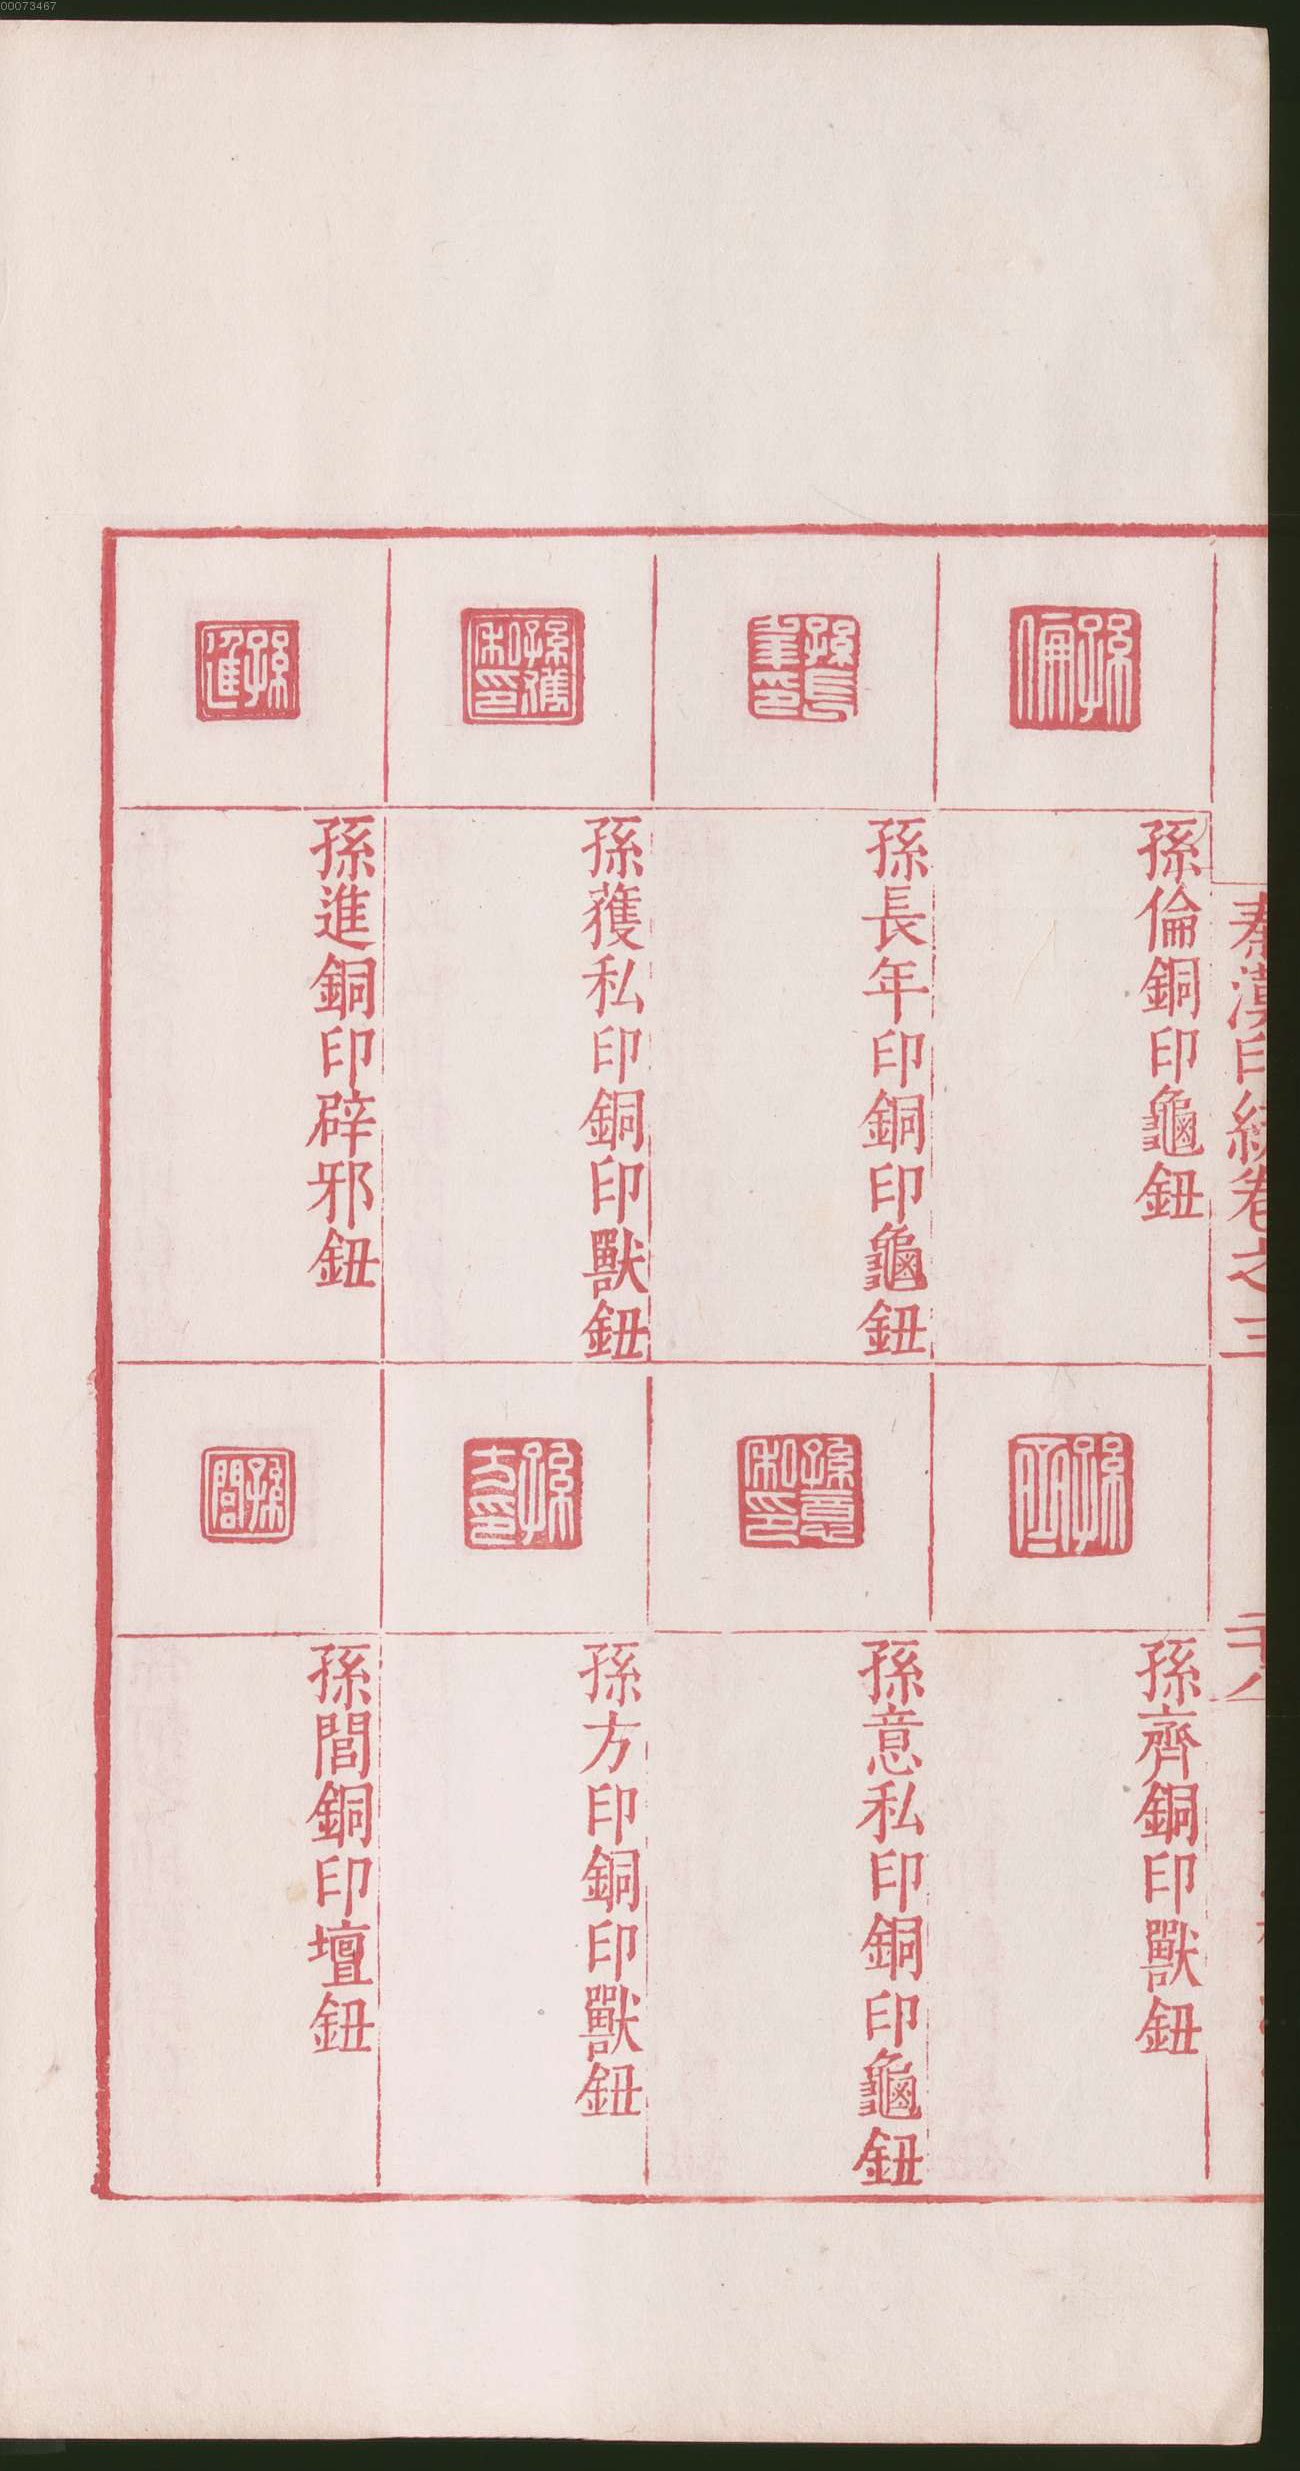 00073467
秦漢印統卷之三
二十八
孫倫
孫倫銅印龜鈕
孫長年印
孫長年印銅印龜鈕
孫蒦私印
孫蒦私印銅印獸鈕
孫進
孫進銅印辟邪鈕
孫齊
孫齊銅印獸鈕
孫意私印
孫意私印銅印龜鈕
孫方印
孫方印銅印獸鈕
孫閭
孫閭銅印壇鈕